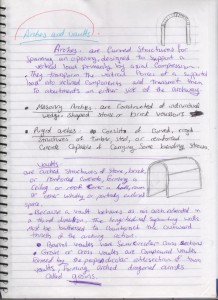 Arches and vaults:
Arches:- are curved structures for
spanning an opening, designed to support a
vertical load primarily by axial compression.
• They transform the vertical forces of a supported
load into inclined components and transmit them
to abutments on either side of the archway.
• Masonry Arches are constructed of individual
wedge-shaped stone or brick voussoirs
• Rigid arches consists of curved, rigid
structures of timber, steel, or reinforced
concrete capable of carrying some bending stresses
Vaults
are arched structures of stone, brick,
or reinforced concrete, forming a
ceiling or roof over a hall, room
or other wholly or partially enclosed
space.
• Because a vault behaves as an arch extended in
a third direction, the longitudinal supporting walls
must be buttressed to counteract the outward
thrusts of the arching action.
• Barrel vaults have semicircular cross sections
• Groin or Cross vaults are compound vaults
formed by the perpendicular intersection of two
vaults, forming arched diagonal arrises
called Groins.